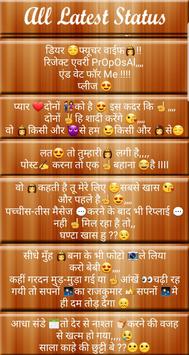 All Latest Status
डियर 😔फ्यूचर वाईफ👩!!
रिजेक्ट एवरी PrOpOsAl,,,,
एंड वेट फॉर Me !!!!
प्लीज 😍
प्यार ❤दोनों 👫को है 😘 इस कदर कि ☝,,,,
दोनों ✌हि शादी करेंगे 😘,,,,
वो 👩किसी और 😈से हम 😉किसी और 👩से😏
लत😍 तो तुम्हारी 👩 लगी है,,,,
पोस्ट✍ करना तो एक ☝बहाना 😂है !!!!
वो 👩कहती है तू मेरे लिए 😍सबसे खास 😘
और पहले है☝😘,,,,
पच्चीस-तीस मैसेज 💬करने के बाद भी रिप्लाई 💬
नही ☝मिल रहा है तों,,
घण्टा खास हु ??😒
सीधे मुँह 👩बना के भी फोटो 📷ले लिया
करो बेबी😍,,,,
कहीं गरदन मुड-मुडा गई या ☝आंखें 👀चढ़ी रह
गयी तो सपनों 👪का राजकुमार 👲 सपनों 👪मे
ही दम तोड़ देगा 😂
आधा संडे 📅तो देर से नाश्ता 🍳करने की वजह
से खत्म हो गया,,,, 😜
साला काहे की छुट्टी थे ??😬